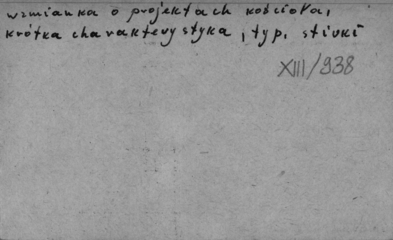 wzmianka o projektach kościoła,
krótka charakterystyka, typ,
XIII/938